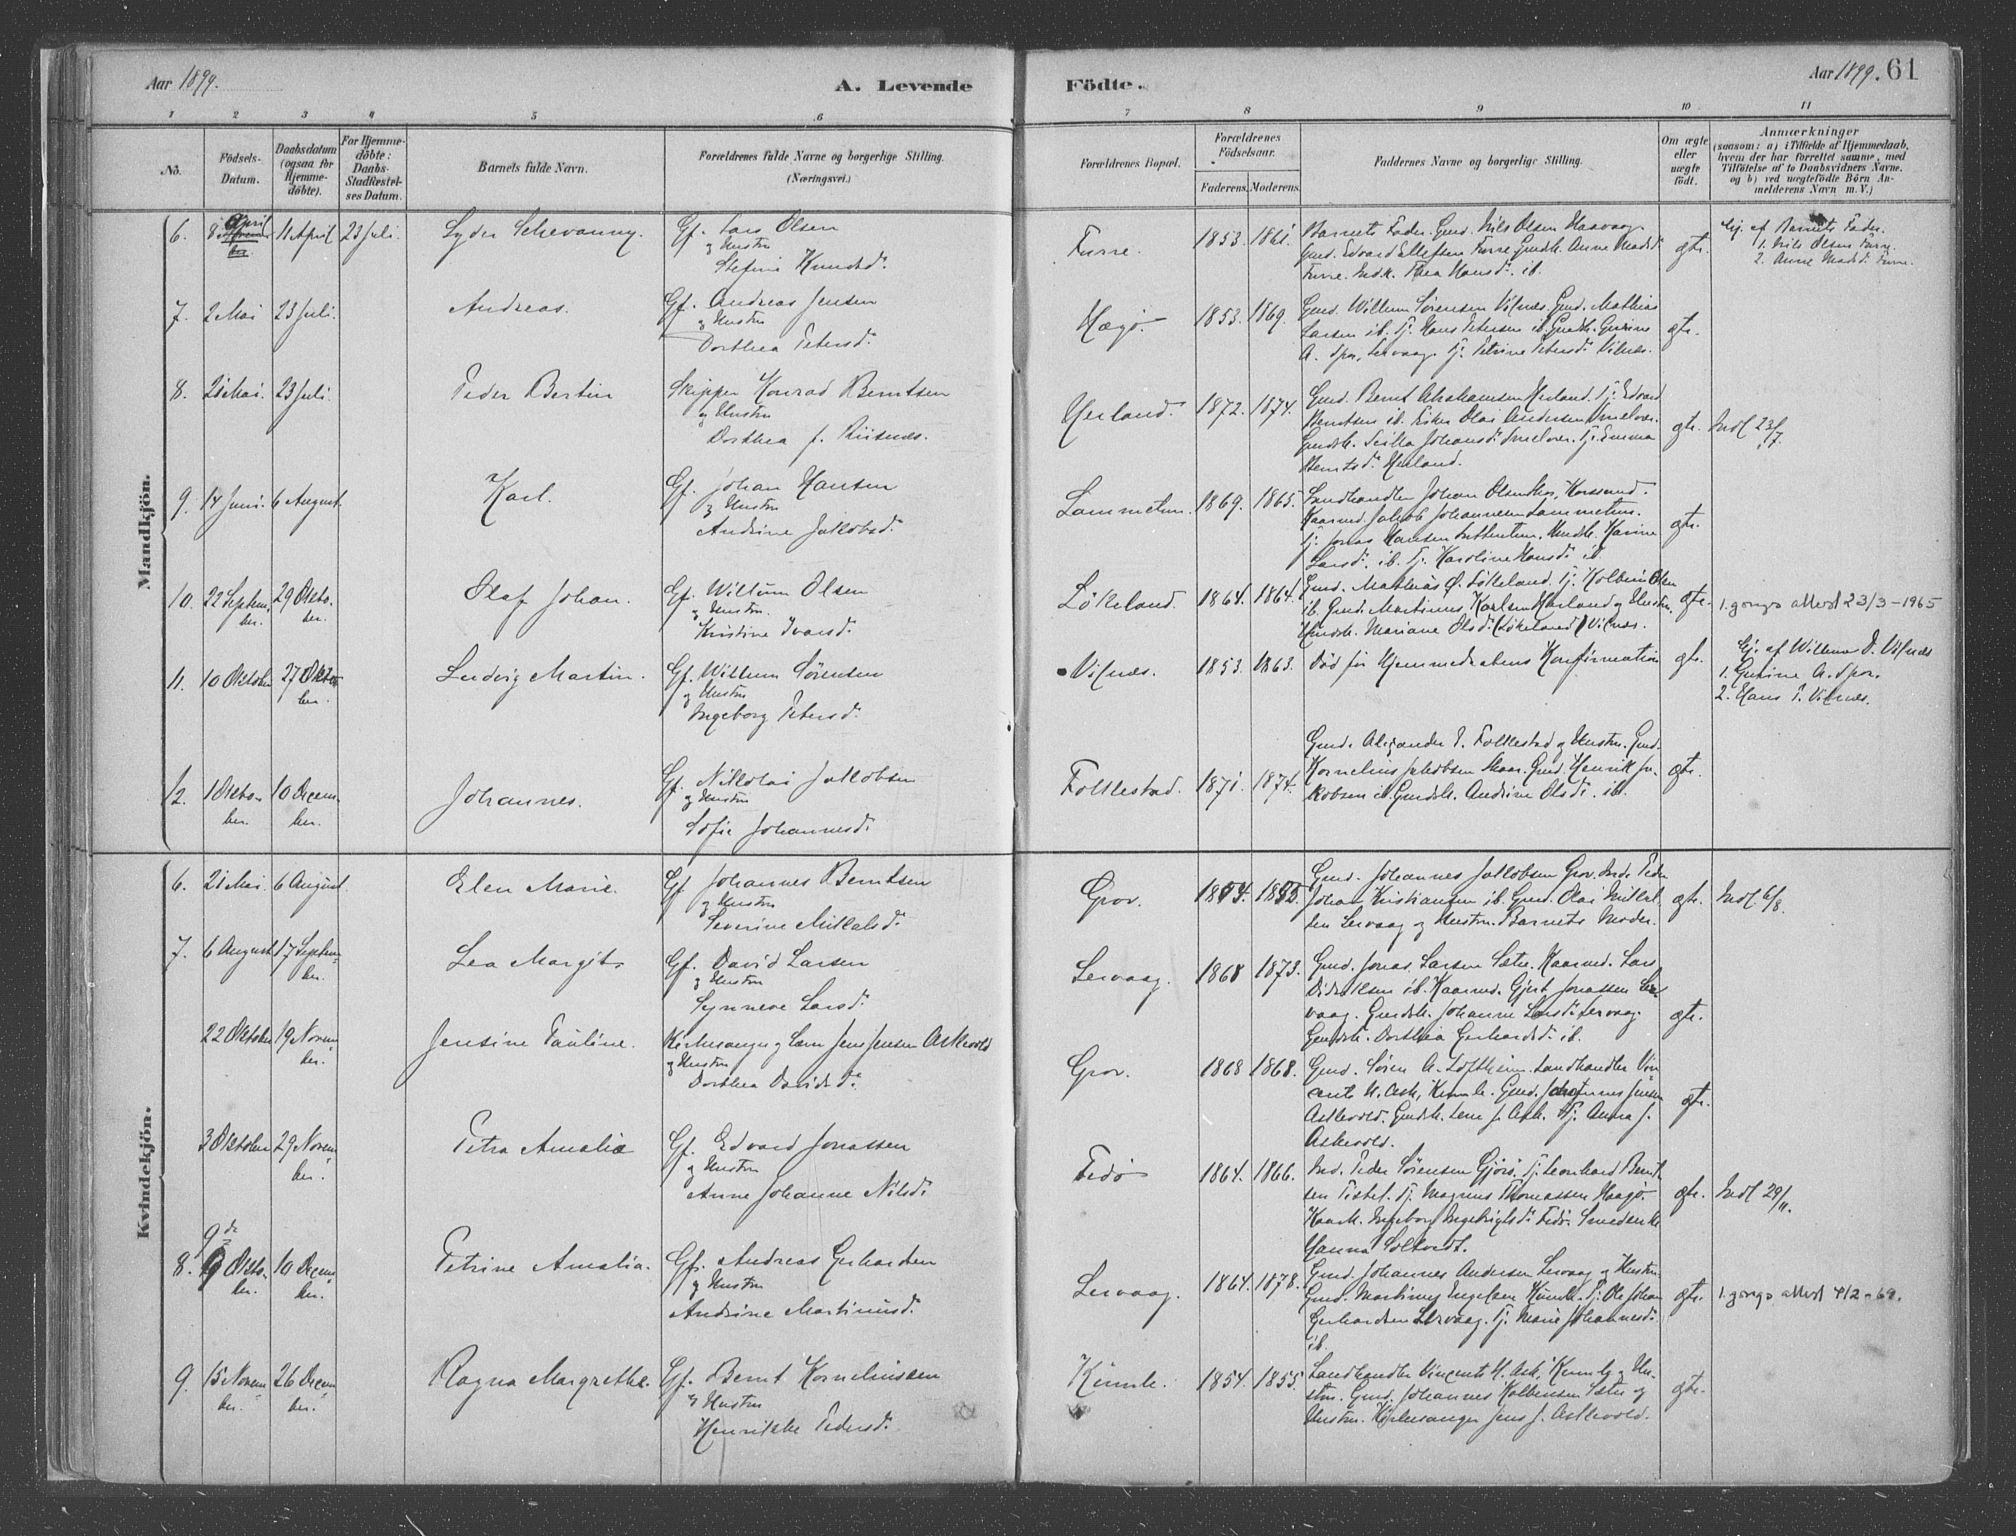 Aar 1899.
A. Levende
Födte.
Aar 1899. 61
1 2 3 4 5 6 7 8 9 10 11
No.
Födsels-
Datum.
Daabsdatum
(ogsaa for
Hjemme-
döbte).
For Hjemme-
döbte:
Daabs-
Stadfæstel-
ses Datum.
Barnets fulde Navn.
Forældrenes fulde Navne og borgerlige Stilling.
(Næringsvei.)
Forældrenes Bopæl.
Forældrenes
Födselsaar.
Faderens. Moderens.
Faddernes Navne og borgerlige Stilling.
Om ægte
eller
uægte
födt.
Anmærkninger
(saasom: a) i Tilfælde af Hjemmedaab,
hvem der har forrettet samme, med
Tilföielse af to Daabsvidners Navne.
og b) ved uægtefödte Börn An-
melderens Navn m. V.)
Mandkjön.
6. 8 April 11 April 23 Juli. Lyder
Gf. Lars Olsen
og Hustru
Knudsd.
Furre. 1853. 1861.
Barnets Fader. Gmd. Nils Olsen
Gmd. Edvard Ellefsen Furre Gmdk. Anne Madsd.
Furre. Thea Hansd. ib.
gte.
Hj. af Barnets Fader.
1. Nils Olsen Furre.
2. Anne Madsd. Furre.
7. 2 Mai 23 Juli. Andreas.
Gf. Andreas Jensen
og Hustru
Dorthea Petersd.
1853. 1869.
Gmd. Willum Sørensen Vilnæs, Gmd. Mathias
Larsen ib. Tj. Hans Petersen ib. Gmdk. Gurine
A. Spor, Lervaag. Tj. Petrine Petersd. Vilnæs.
gte.
8. 21 Mai. 23 Juli. Peder Bertin
Skipper Konrad Berntsen
og Hustru
Dorthea f. Riisnæs.
Herland. 1872. 1874.
Gmd. Bernt Abrahamsen Herland. Tj. Edvard
Berntsen ib. Fisker Olai Andersen
Gmdk. Johansd. Tj. Emma
Berntsd. Herland.
gte. Indl 23/7.
9. 14 Juni. 6 August. Karl.
Gf. Johan Hansen
og Hustru
Andrine Jakobsd.
Lammetun. 1869. 1865.
Landhandler Johan Olsen
Kaarmd. Jakob Johannesen Lammetun.
Tj. Jonas Hansen Karine
Larsd. ib. Tj. Karoline Hansd. ib
gte.
10. 22 Septem- 29 Okto-
ber. ber.
Olaf Johan.
Gf. Willum Olsen
og Hustru
Kristine Ivarsd.
Løkeland. 1864. 1864.
Gmd. Mathias Ø. Løkeland. Tj. Kolbein Olsen
ib. Gmd. Martinus Karlsen Herland og Hustru.
Gmdk. Mariane Olsd. (Løkeland) Vilnæs.
gte. 1. gongs attest 23/3-1965
11. 10 Oktober 27 Okto-
ber.
Ludvig Martin.
Gf. Willum Sørensen
og Hustru
Ingeborg Petersd.
Vilnæs. 1853. 1863.
Død før Hjemmedaabens Konfirmation
gte.
Hj. af Willum S. Vilnæs
1. Gurine A. Spor.
2. Hans P. Vilnæs.
12. 1 Okto- 10 Decem-
ber. ber.
Johannes.
Gf. Nikolai Jakobsen
og Hustru
Sofie Johannesd.
Folkestad. 1871. 1874.
Gmd. Alexander E. Folkestad og Hustru. Gmd.
Kornelius Jakobsen Skaar. Gmd. Henrik Ja-
kobsen ib. Gmdk. Andrine Olsd. ib.
gte.
Kvindekjön.
6. 21 Mai. 6 August. Elen Marie.
Gf. Johannes Berntsen
og Hustru
Severine Mikkelsd.
Grov. 1854. 1855.
Gmd. Johannes Jakobsen Grov. Ind. Peder
Johan Kristiansen ib. Gmd. Olai Mikkel-
sen Lervaag og Hustru. Barnets Moder.
gte. Indl 6/8.
7. 6 August 17 Septem-
ber.
Lea Margit
Gf. David Larsen
og Hustru
Synneve Larsd.
Lervaag. 1868 1873.
Gmd. Jonas Larsen Sætre. Kaarmd. Lars
Didriksen ib. Kaarmd. Gjert Jonassen Ler-
vaag. Gmdsk. Johanne Larsd. Lervaag.
Gmdsk. Dorthea Gerhardsd. ib.
gte.
22 Oktober 19 Novem-
ber.
Jensine Pauline.
Kirkesanger og Lærer Jens Jensen Askevold
og Hustru
Dorthea Davidsd.
Grov. 1868 1868.
Gmd. Søren A. Loftheim. Landhandler Vin-
cents H. Ask, Gmd. Johannes Jensen
Askevold. Gmdk. Lene J. Ask. Tj. Anna J.
Askevold.
gte.
3 Oktober 29 Novem-
ber.
Petra Amalie
Gf. Edvard Jonassen
og Hustru
Anne Johanne Nilsd.
Fedø 1864. 1866.
Ind. Peder Sørensen Gjørø. Tj. Leonhard Bernt-
sen Tistel. Tj. Magnus Thomassen
Kaark. Ingeborg Ingebrigtsd. Fedø. Smedenke
Hanna Solkvedt.
gte. Indl 29/11.
9de
8. 9 Okto- 10 Decem-
ber. ber.
Petrine Amalia.
Gf. Andreas Gerhardsen
og Hustru
Andrine Martinusd.
Lervaag. 1864. 1878.
Gmd. Johannes Andersen Lervaag og Hustru.
Gmd. Martinus Engelsen Tj. Ole Johan
Gerhardsen Lervaag. Tj. Marie Johannesd.
ib.
gte. 1. gongs attest 4/2-69.
9. 15 Novem- 26 Decem-
ber. ber.
Ragna Margrethe.
Gf. Bernt Korneliussen
og Hustru
Henrikke Pedersd.
1854. 1855.
Landhandler Vincents H. Ask, og Hu-
stru. Gmd. Johannes Kolbeinsen Sætre og
Hustru. Kirkesanger Jens J. Askevold.
gte.